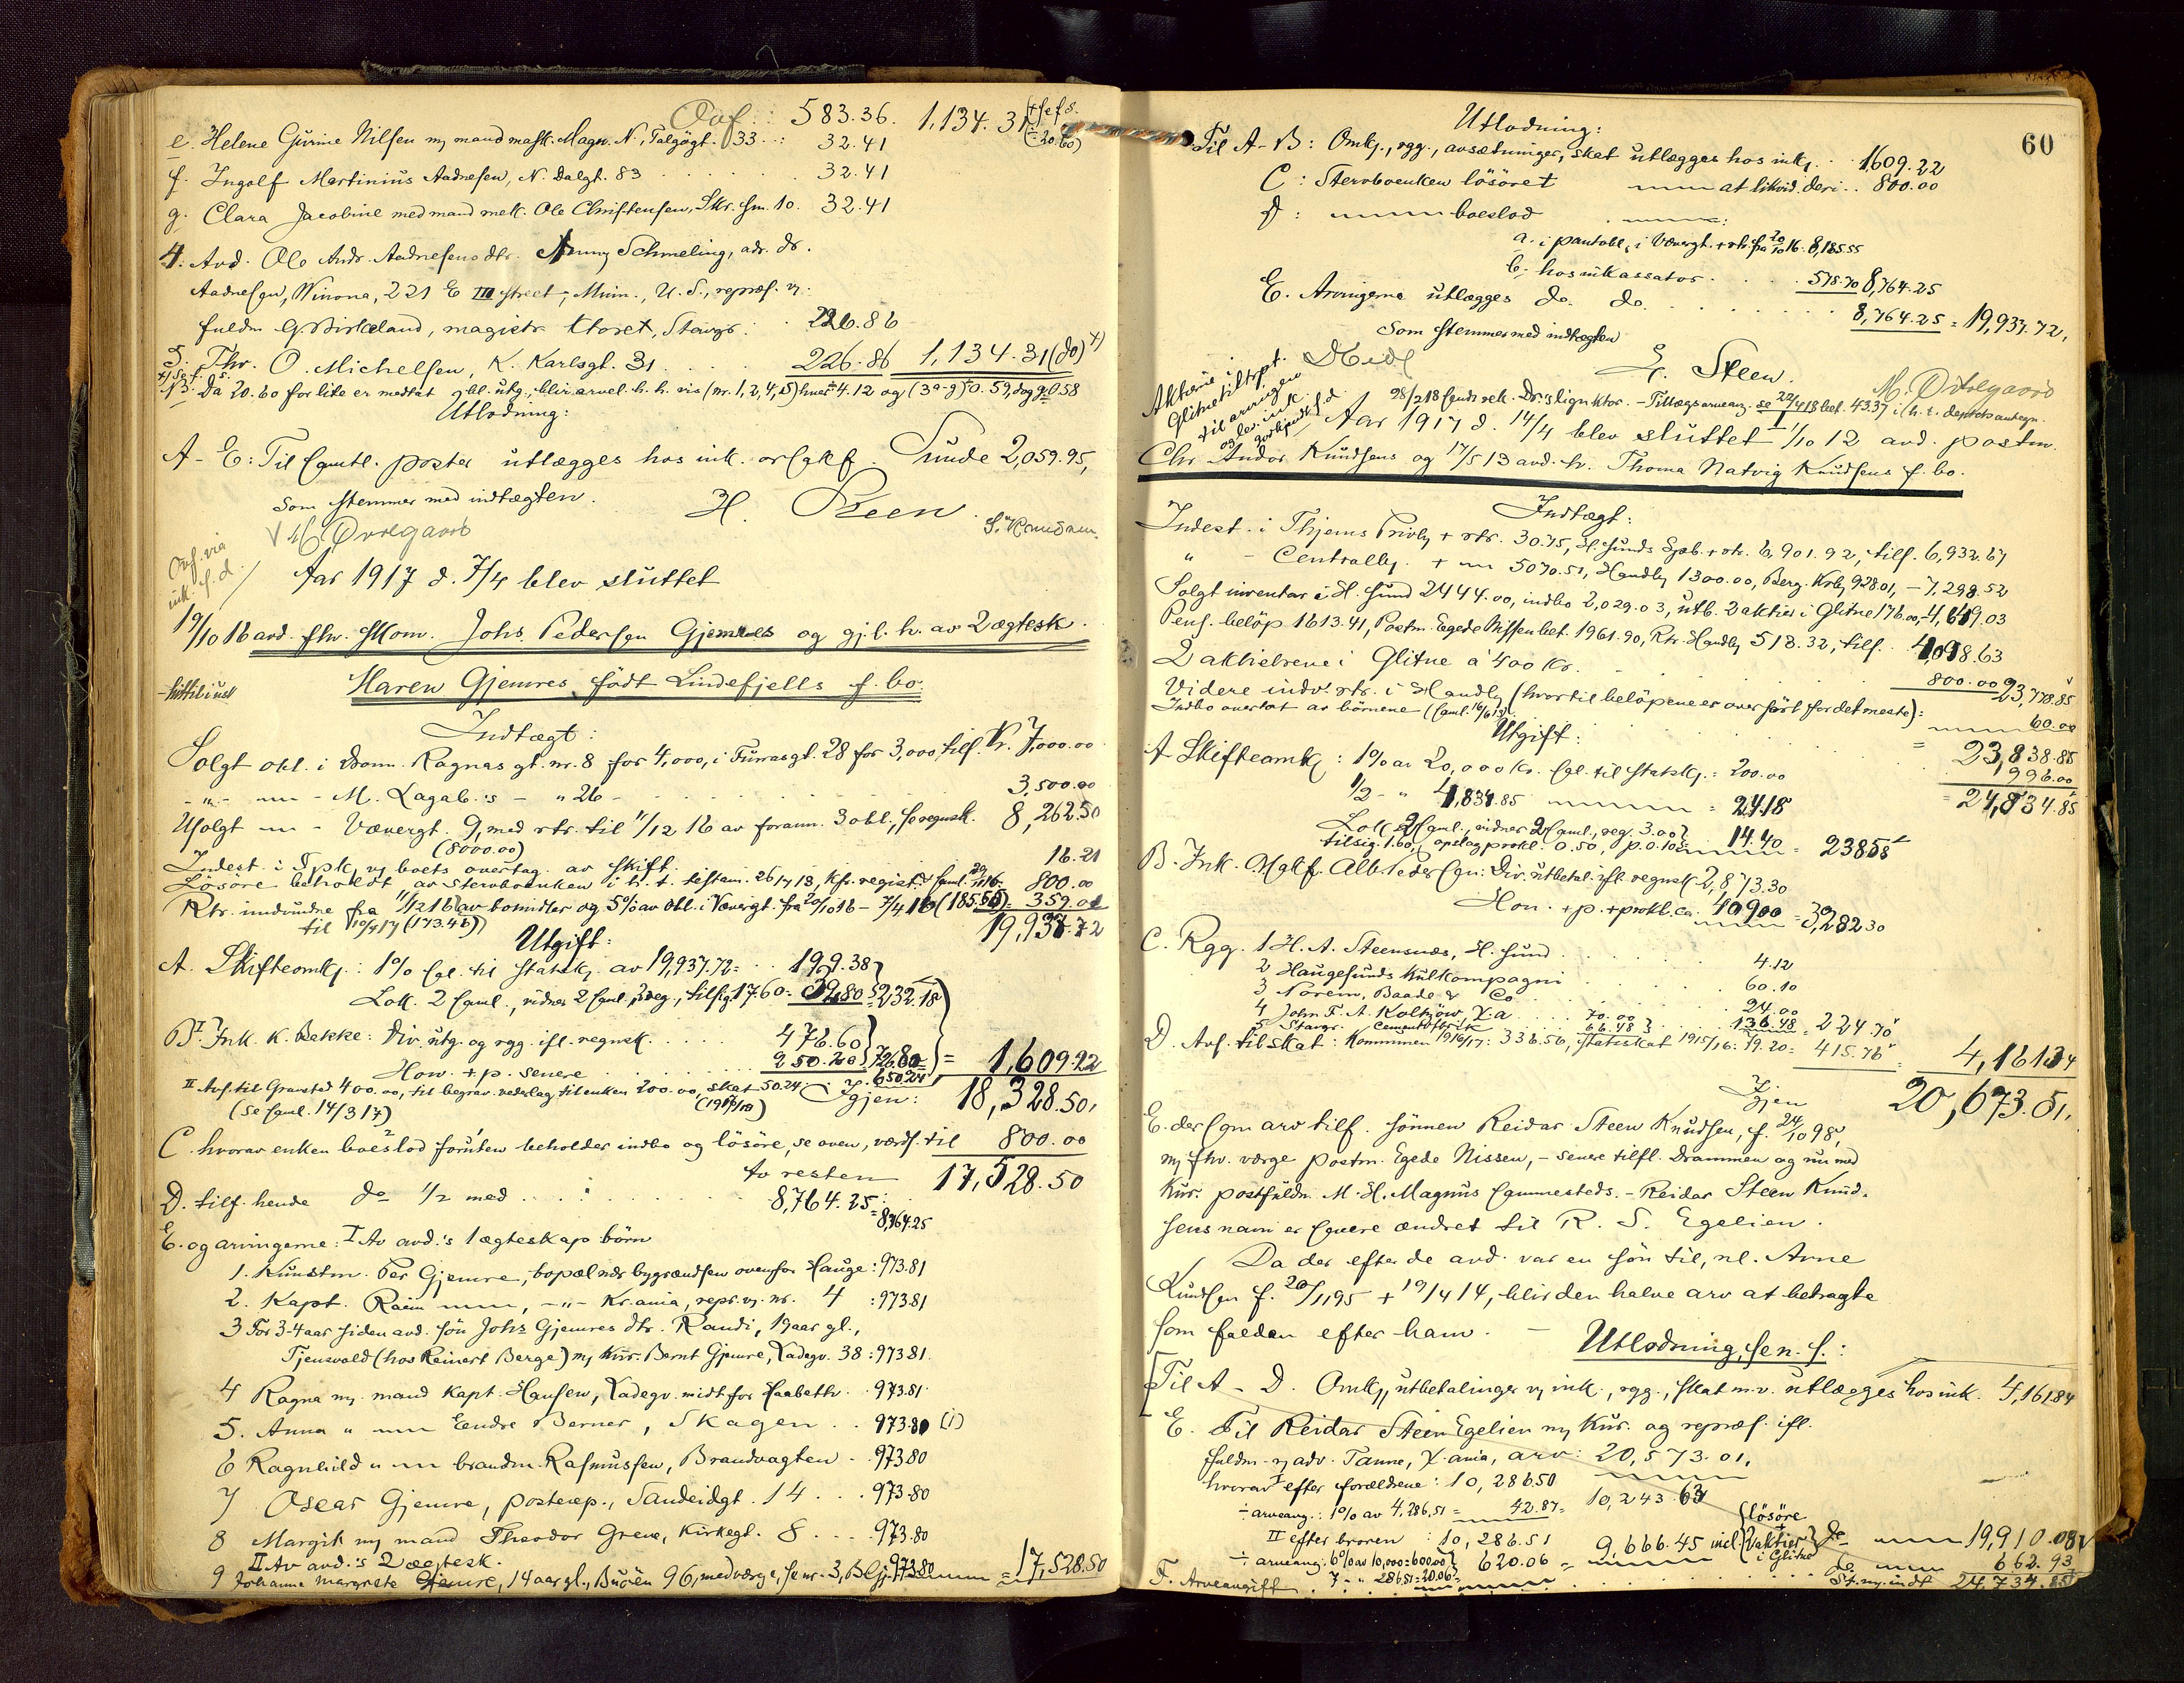 Ovf: 583.36. 1,134.31
e. Helene Gurine Nilsen m/ mand mask. Magn. N., Talgøgt. 33 .. : 32.41
f. Ingolf Martinius Aadnesen, N. Dalgt. 83 . . . . . 32.41
g. Clara Jacobine med mand mek. Ole Christensen, Skr. sm. 10. 32.41
4. Avd. Ole Andr. Aadnesens dtr. Anny Schmeling, adr. dr.
Aadnesen, Winona, 221 E III street, Minn., U. S., repræs. v.
fuldm. G Birkeland, magistr. ktoret, Stavgr: 226.86
5. Thv. O. Michelsen, K. Karlsgt. 31 . . . . 226.86 1,134.31 (do) x)
NB. Da 20.60 for lite er medtat
Utlodning:
A - E: Til samtl. poster utlægges hos ink. orsakf. Sunde 2,059.95,
som stemmer med indtægten. H. Steen.
S. Knudsen.
Ovf. via ink. s. d.
Aar 1917 d. 7/4 blev sluttet
19/10 16 avd. fhv. Johs. Pedersen Gjemres og gjl. h. av 2 ægtesk.
Haren Gjemres født Lindefjells f. bo.
Indtægt:
Solgt obl. i Dronn. Ragnas gt. nr. 8 for 4,000, i Furrasgt. 28 for 3,000, tils. Kr. 7,000.00
- " - — - M. Lagab.'s - " 26 - . . . 3,500.00
Usolgt — - Vævergt. 9, med rtr. til 11/12 16 av forann. 3 obl., se regnsk. 8,262.50
(8000.00)
Indest. i Spk. v/ boets overtag. av skift. 16.21
Løsøre beholdt av stervboenken i h. t. testam. 26/7 13, 800.00
Rtr. indvundne fra 11/12 16 av bomidler og 5% av obl. i Vævergt. fra 20/10 16 - 7/4 16 (185.55) = 359.01
til 10/4 17 (173.46) 19,937.72
Utgift:
A. Skifteomk.: 1% sgl. til statsk. av 19,937.72 = . . 199.38
Lok. 2 saml., vidner 2 saml., 2 seg., tilsig. 17.60 = 32.80 = 232.18
B. I. Ink. K. Bekke: Div. utg. og rgg. ifl. regnsk. . . . . 476.60
Hon. + p. senere . . . 250.20 726.80 = 1,609.22
II Avs. til Gravsted 400.00, til begrav. vederlag til enken 200.00, skat 50.24: 650.24
(se saml. 14/3 17) Igjen: 18,328.50,
C. hvorav enken boeslod foruten beholder indbo og løsøre, se oven, værds. til 800.00
Av resten 17,528.50
D. tilf. hende do 1/2 med . . . 8,764.25 = 8,764.25
E. og arvingerne: I Av avd.'s 1 ægteskap børn
1. Kunstm. Per Gjemre, bopæl nær bygrændsen ovenfor Hauge: 973.81
2. Kapt. Raein —, - " - Kr.ania, repr. v. nr. 4 : 973.81
3 For 3-4 aar siden avd. søn Johs Gjemres dtr. Randi, 19 aar gl.,
Tjensvold (hos Reinert Berge) m/ kur. Bernt Gjemre, Ladegv. 38: 973.81.
4 Ragna m. mand kapt. Hansen, Ladegv. midt for Haabeth. . 973.81.
5. Anna " — Eendre Berner, Skagen . . 973.80 (1)
6 Ragnhild " — brandm. Rasmussen, Brandvagten . . 973.80
7 Oscar Gjemre, postexp., Sandeidgt. 14 . . . 973.80
8 Margit m/ mand Theodor Grene, Kirkegt. 8 . . . 973.80
II Av avd.'s 2 ægtesk.
9 Johanna Margrete Gjemre, 14 aar gl., Buøen 96, med værge, se nr. 3, B. Gj. 973.80 = 17,528.50
60
Utlodning:
Til A - B: Omk., rgg., avsætninger, skat utlægges hos ink. . . 1609.22
C: Stervboenken løsøret — at likvid. deri . . 800.00
D: — boeslod . —:
a. i pantobl. i Vævergt. + rtr. fra 20/10 16. 8,185.55
b. hos inkassator . . . . 578.70 8,764.25
E. Arvingerne utlægges do. do. . . . . 8,764.25 = 19,937.72,
som stemmer med indtægten
H. Steen.
Aktierne i Glitne
til arvingen
Aar 1917 d. 14/4 blev sluttet 1/10 12 avd. postm.
Chr. Andor Knudsens og 17/5 13 avd. h. Thoma Natvig Knudsens f. bo.
Indtægt:
Indest. i Thjems Privbk + rtr. 30.75, H.sunds Spb. + rtr. 6,901.92, tils. 6,932.67
" - Centralbk. + — 5070.51, Handbk 1300.00, Berg. Krbk 928.01, - 7,298.52
Solgt inventar i H.sund 2444.00, indbo 2,029.03, utb. 2 aktier i Glitne 176.00, - 4,649.03
Pens. beløp 1613.41, Postm. Egede Nissen bet. 1961.90, Rtr. Handbk 518.32, tils. . 4,098.63
2 aktiebreve i Glitne à 400 Kr. . 800.00 23,778.85
Videre indv. rtr. i Handbk (hvortil beløpene er overført for det meste): — 60.00
Indbo overtat av børnene (saml. 16/6 13) = 23,838.85
996.00
Utgift: = 24,834.85
A Skifteomk.: 1% av 20,000 kr. sgl. til statsk. = 200.00
1/2 - " 4,834.85 — = 24.18
Lok. 2 saml., vidner 2 saml., seg. 3.00
tilsig. 1.60, opslag prokl. 0.50, p. 0.10 = 14.40 = 238.58
B. Ink. O/gkf. Alb. Pedersen: Div. utbetal. ifl. regnsk. 2,873.30
Hon. + p. + prokl. ca. 409.00 = 3,282.30
C. Rgg. 1 H. A. Steensnæs, H.sund . . . . 4.12
2 Haugesunds Kulkompagni . . . . 60.10
3 Norem, Baade & Co . . . . 24.00
4 John F. A. Koltzow, X.a . . . 70.00
5 Stavgr. Cementstøbrik 66.48 136.48 = 224.70
D. Avs. til skat: Kommunen 1916/17: 336.56, statsskat 1915/16: 79.20 = 415.76 = 4,161.34
Igjen 20,673.51,
E. der som arv tilf. sønnen Reidar Steen Knudsen, f. 24/10 98,
m/ fhv. værge postm. Egede Nissen, - senere tilfl. Drammen og nu med
kur. postfuldm. M. H. Magnus sammesteds. - Reidar Steen Knud-
sens navn er senere ændret til R. S. Egelien.
Da der efter de avd. var en søn til, nl. Arne
Knudsen f. 20/11 95 + 19/4 14, blir den halve arv at betragte
som falden efter ham. - Utlodning, se n. s.:
Til A - D. Omk., utbetalinger v/ ink., rgg., skat m.v. utlægges hos ink. 4,161.84
E. Til Reidar Steen Egelien m/ kur. og repræs. ifl.
fuldm. v/ adv. Tanne, X.ania, arv: 20,573.01,
hvorav I efter forældrene: 10,286.50
÷ arveavg.: 1% av 4,286.51 = 42.87 = 10,243.63
II efter broren : 10,286.51
÷ arveavg. 6% av 10,000 = 600.00
7 - " 286.51 = 20.06 620.06 = 9,666.45 incl. løsøre + 2 aktier i Glitne do — 19,910.08
F. Arveavgift . . . . do — 662.93
St. m. indt 24,734.85